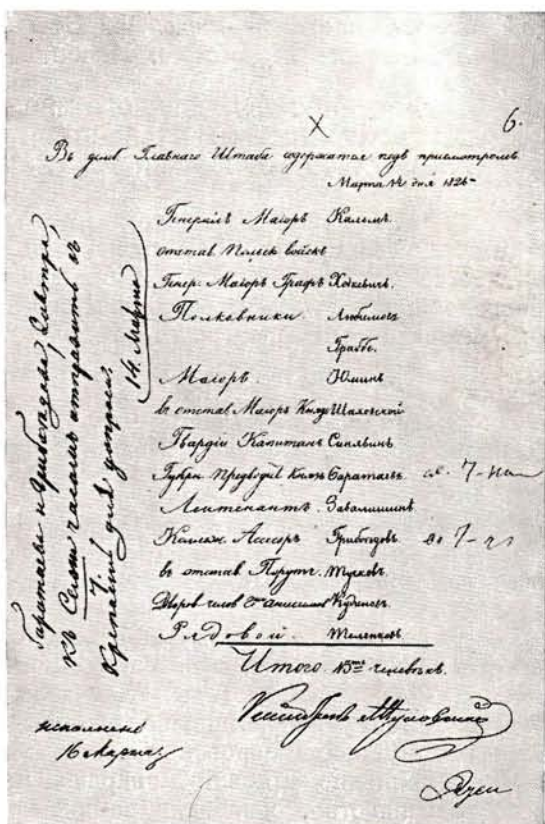 6.
Въ домѣ Главнаго Штаба содержатся подъ присмотромъ
Марта 14 дня 1826
Генералъ Маіоръ Кальмъ
отстав. Польск. войскъ
Генер. Маіоръ Графъ Ходкевичъ.
Полковники Любимовъ
Граббе.
Маіоръ. Юминъ
въ отстав. Маіоръ Князь Шаховской
Гвардіи Капитанъ Синявинъ
Губерн. Предводит. Князь Баратаевъ въ 7-
Лейтенантъ Завалишинъ
Коллежк. Ассесоръ Грибоѣдовъ во 7-
въ отстав. Поруч. Тучковъ.
Дворов. человѣкъ
Рядовой
Итого 15 человѣкъ.
Баратаева и Грибоѣдова, завтра,
къ Семи часамъ отправить въ
7.
Крѣпость для допросей.
14 Марта
исполнено
16 Марта